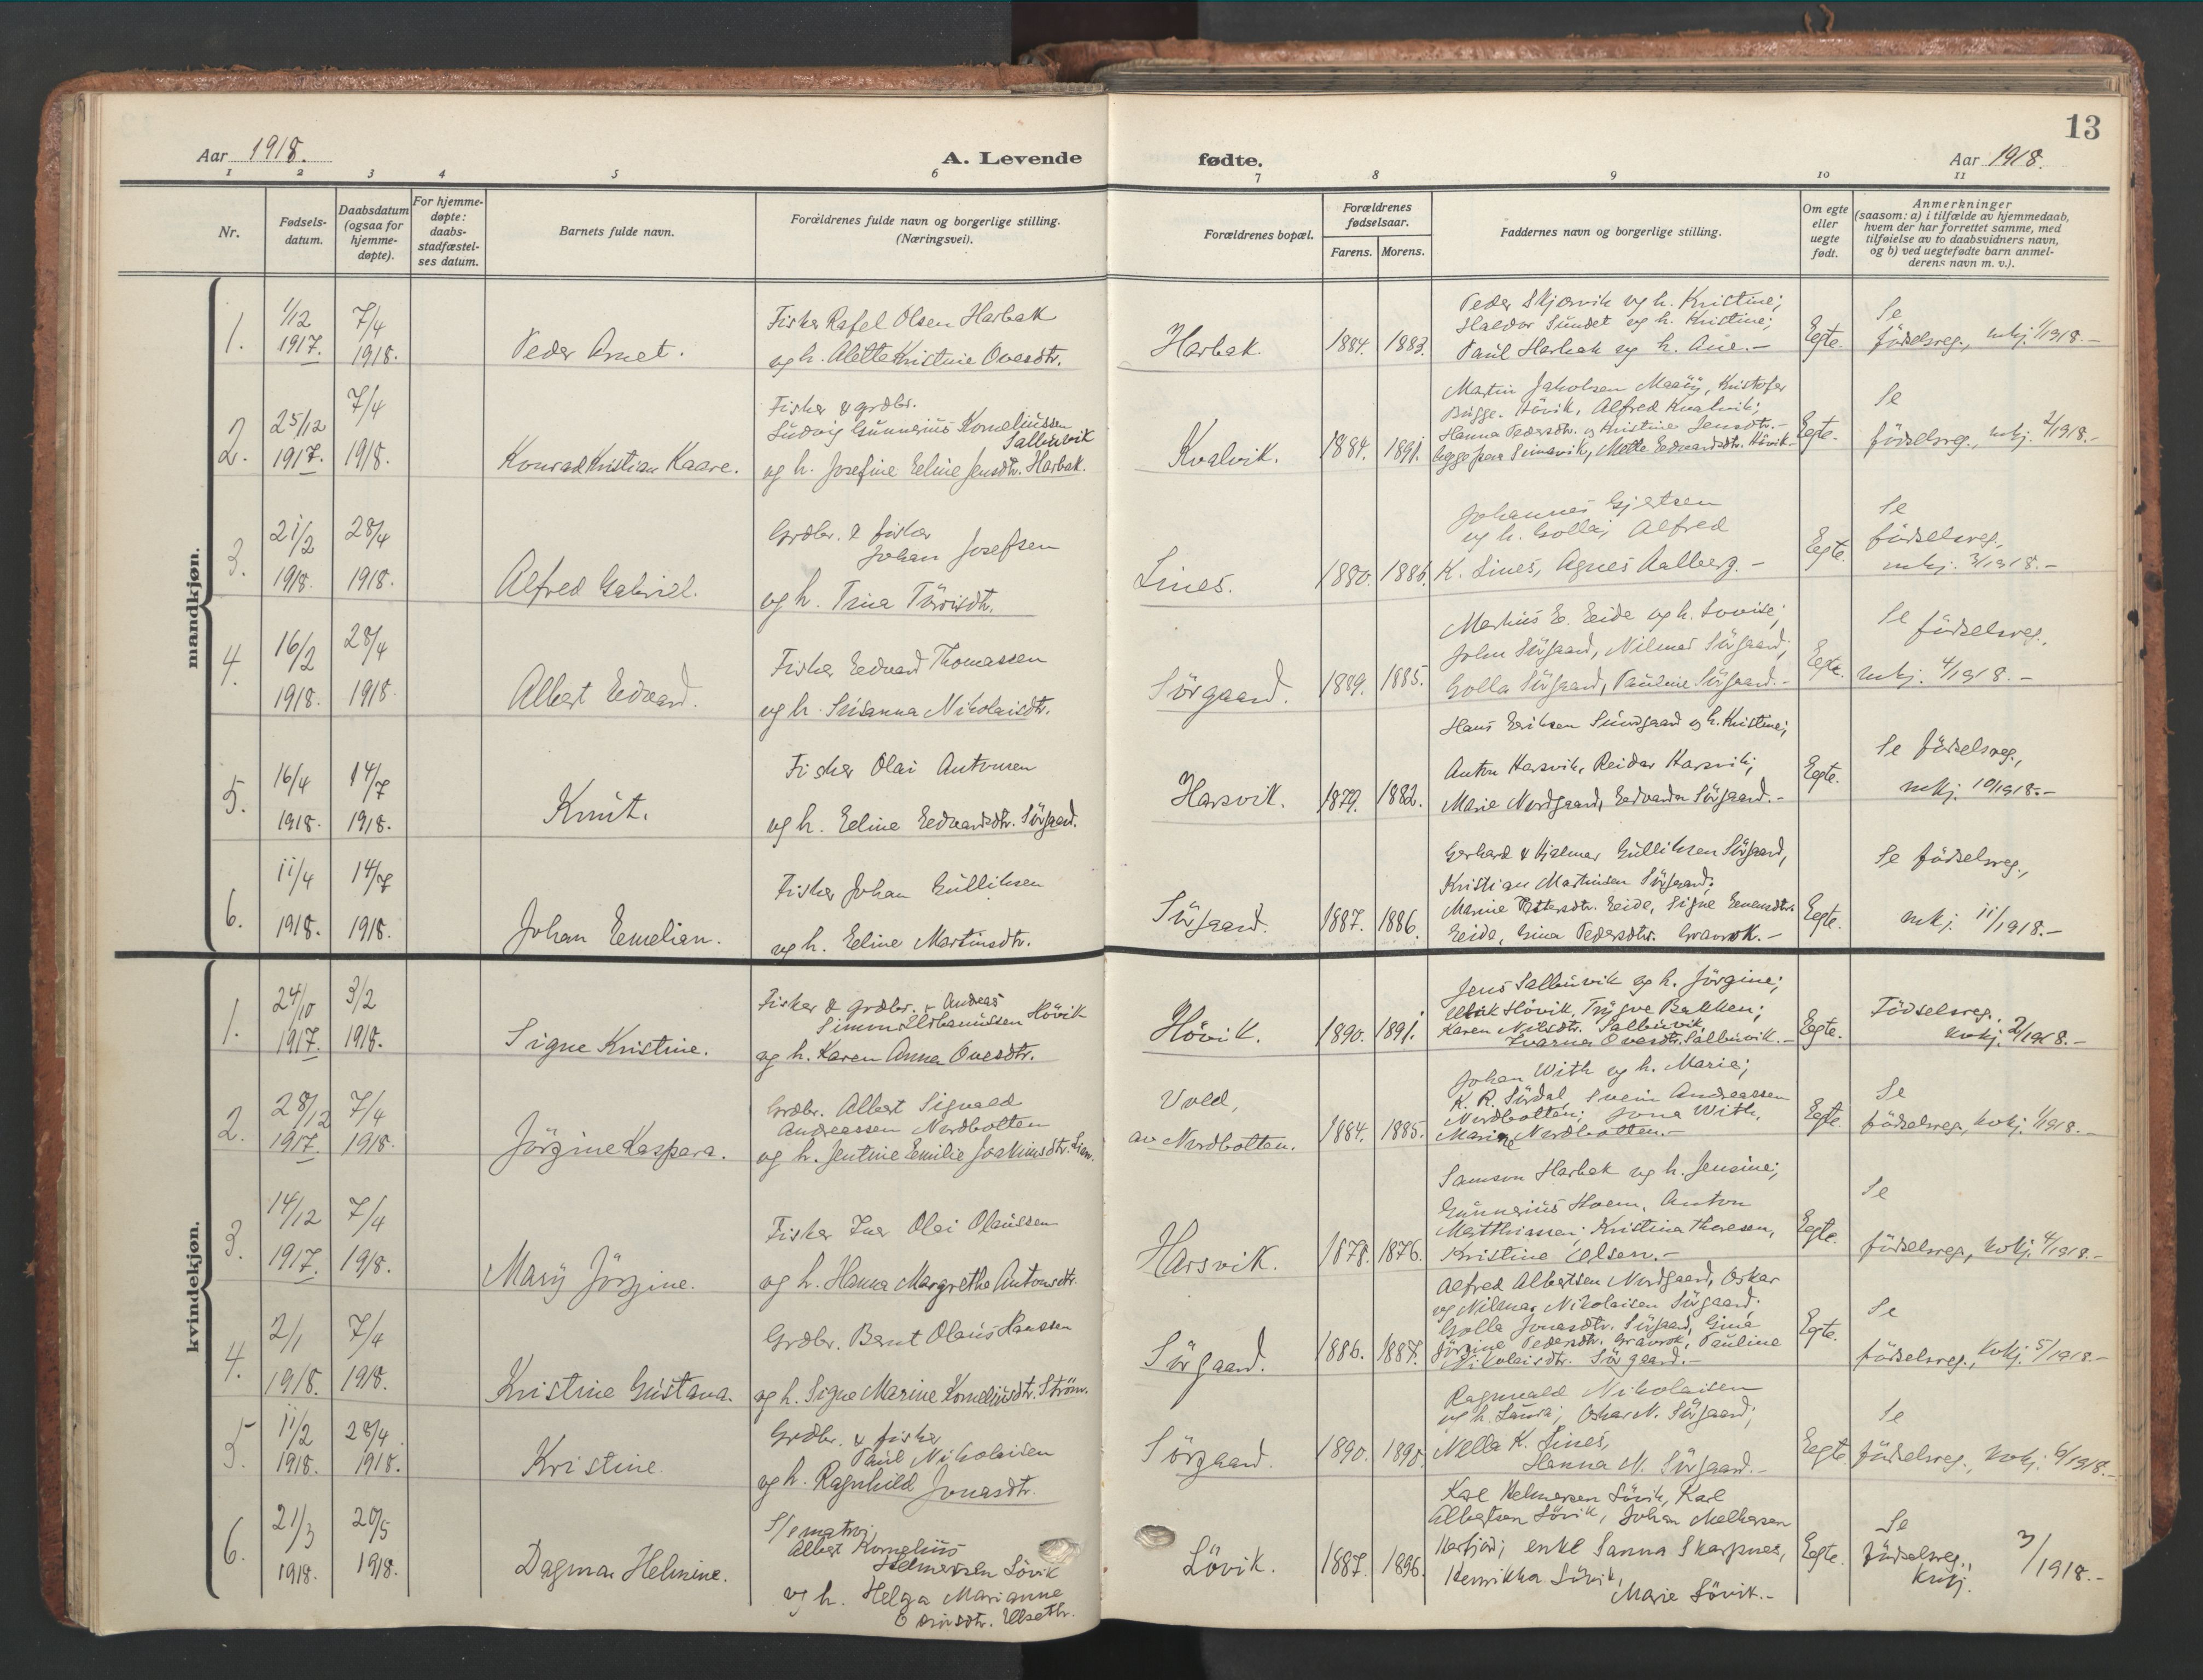 13
Aar 1918.
A. Levende
fødte.
Aar 1918.
1 2 3 4 5 6 7 8 9 10 11
Nr.
Fødsels-
datum.
Daabsdatum
(ogsaa for
hjemme-
døpte).
For hjemme-
døpte:
daabs-
stadfæstel-
ses datum.
Barnets fulde navn.
Forældrenes fulde navn og borgerlige stilling.
(Næringsvei).
Forældrenes bopæl.
Forældrenes
fødselsaar.
Farens. Morens.
Faddernes navn og borgerlige stilling.
Om egte
eller
uegte
født.
Anmerkninger
(saasom: a) i tilfælde av hjemmedaab,
hvem der har forrettet samme, med
tilføielse av to daabsvidners navn,
og b) ved uegtefødte barn anmel-
derens navn m. v.).
mandkjøn.
1.
1/12
1917.
7/4
1918.
Peder Arnet.
Fisker Rafel Olsen Harbak
og h. Alette Kristine Ovesdtr.
Harbak.
1884. 1883.
Peder Skjærvik og h. Kristine;
Haldor Sundet og h. Kristine;
Paul Harbak og h. Ane.-
Egte.
Se
födselsreg., mkj. 1/1918.-
2.
25/12
1917.
7/4
1918.
Konrad Kristian Kaare.
Fisker & grdbr.
Ludvig Gunnerius Korneliussen
Salbuvik
og h. Josefine Eline Jensdtr. Harbak.
Kvalvik.
1884. 1891.
Martin Jakobsen Kristofer
Bugge. Hövik, Alfred Kvalvik;
Hanna Pedersdtr. og Kristine Jensdtr.-
Mette Edvardsdtr. Hövik.-
Egte.
Se
födselsreg., mkj. 2/1918.-
3.
21/2
1918.
28/4
1918.
Alfred Gabriel.
Grdbr. & fisker
Johan Josefsen
og h. Trina
Lines.
1880. 1886.
Johannes Gjertsen
og h. Golla; Alfred
K. Lines, Agnes Aalberg.-
Egte.
Se
födselsreg.,
mkj. 3/1918.-
4.
16/2
1918.
28/4
1918.
Albert Edvard.
Fisker Edvard Thomassen
og h. Susanna Nikolaisdtr.
Sörgaard.
1889. 1885.
Markus E. Eide og h. Lovise;
John Sörgaard, Nilmar Sörgaard;
Golla Sörgaard, Pauline Sörgaard.-
Egte.
Se födselsreg.,
mkj. 4/1918.-
5.
16/4
1918.
14/7
1918.
Knut.
Fisker Olai Antonsen
og h. Eline Edvardsdtr. Sörgaard.
Harsvik.
1879. 1882.
Hans Eriksen Sundgaard og h. Kristine;
Anton Harsvik, Reidar Harsvik;
Marie Nordgaard, Edvarda Sörgaard.-
Egte.
Se födselsreg.,
mkj. 10/1918.-
6.
11/4
1918.
14/7
1918.
Johan Emelian.
Fisker Johan Gulliksen
og h. Eline Martinsdtr.
Sörgaard.
1887. 1886.
Gerhard & Hjalmar Gulliksen Sörgaard,
Kristian Martinsen Sörgaard;
Marine Pettersdtr. Eide, Signe Evensdtr.
Eide, Gina Pedersdtr. Gravrok.-
Egte.
Se födselsreg.,
mkj. 11/1918.-
kvindekjøn.
1.
24/10
1917.
3/2
1918.
Signe Kristine.
Fisker & grdbr. Andreas
Simon Hövik
og h. Karen Anna Ovesdtr.
Hövik.
1890. 1891.
Jens Salbuvik og h. Jörgine;
Hövik, Trygve Bakken;
Karen Nilsdtr. Salbuvik,
Ovesdtr. Salbuvik.-
Egte.
Födselsreg.,
kvkj. 2/1918.-
2.
28/12
1917.
7/4
1918.
Jörgine Kaspara.
Grdbr. Albert Sigvald
Andreassen Nordbotten
og h. Jentine Emilie Joakimsdtr. Lien.
Vold,
av Nordbotten.
1884. 1885.
Johan With og h. Marie;
K. R. Sördal, Svein Andreassen
Nordbotten; Jona With,
Marine Nordbotten.-
Egte.
Se
födselsreg., kvkj. 1/1918.-
3.
14/12
1917.
7/4
1918.
Mary Jörgine.
Fisker Iver Olai Olaussen
og h. Hanna Margrethe Antonsdtr.
Harsvik.
1878. 1876.
Samson Harbak og h. Jensine;
Gunnerius Hoem, Anton
Kristina Thoresen,
Kristine Olsen.-
Egte.
Se
födselsreg., kvkj. 4/1918.-
4.
2/1
1918.
7/4
1918.
Kristine Gustava.
Grdbr. Bernt Olaus Hanssen
og h. Signe Marine Korneliusdtr. Ström.
Sörgaard.
1886. 1887.
Alfred Albertsen Nordgaard, Oskar
og Nilmar Nikolaisen Sörgaard;
Golla Jonasdtr. Sörgaard, Gina
Jörgine Pedersdtr. Gravrok, Pauline
Nikolaisdtr. Sörgaard.-
Egte.
Se
födselsreg., kvkj. 5/1918.-
5.
11/2
1918.
28/4
1918.
Kristine.
Grdbr. & fisker
Paul Nikolaisen
og h. Ragnhild Jonasdtr.
Sörgaard.
1890. 1890.
Ragnvald Nikolaisen
og h. Laura; Oskar N. Sörgaard;
Nella K. Lines,
Hanna N. Sörgaard.-
Egte.
Se
födselsreg., kvkj. 6/1918.-
6.
21/3
1918.
20/5
1918.
Dagmar Helmine.
Albert Kornelius
Helmersen Lövik
og h. Helga Marianne
Lövik.
1887. 1896.
Karl Helmersen Lövik, Karl
Albertsen Lövik, Johan Melkersen
Herfjord; enke Sanna Skarpnes,
Henrikka Lövik,
Marie Lövik.-
Egte.
Se
födselsreg.,
kvkj. 3/1918.-